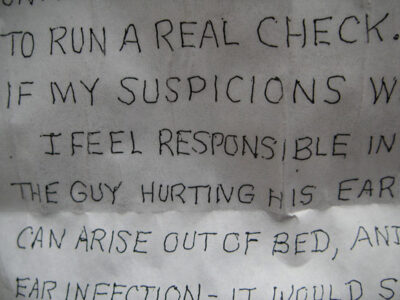 TO RUN A REAL CHECK.
IF MY SUSPICIONS W
I FEEL RESPONSIBLE IN
THE GUY HURTING HIS EAR
CAN ARISE OUT OF BED, AND
EAR INFECTION - IT WOULD S